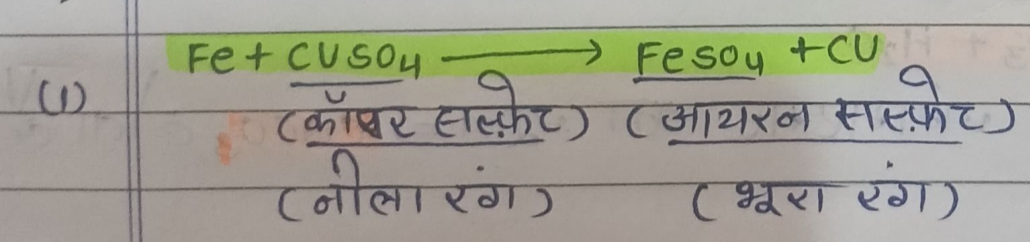 Fe + CUSO4 → FeSO4 + CU
(1) (कॉपर सल्फेट) (आयरन सल्फ़ेट)
(नीला रंग) (भूरा रंग)